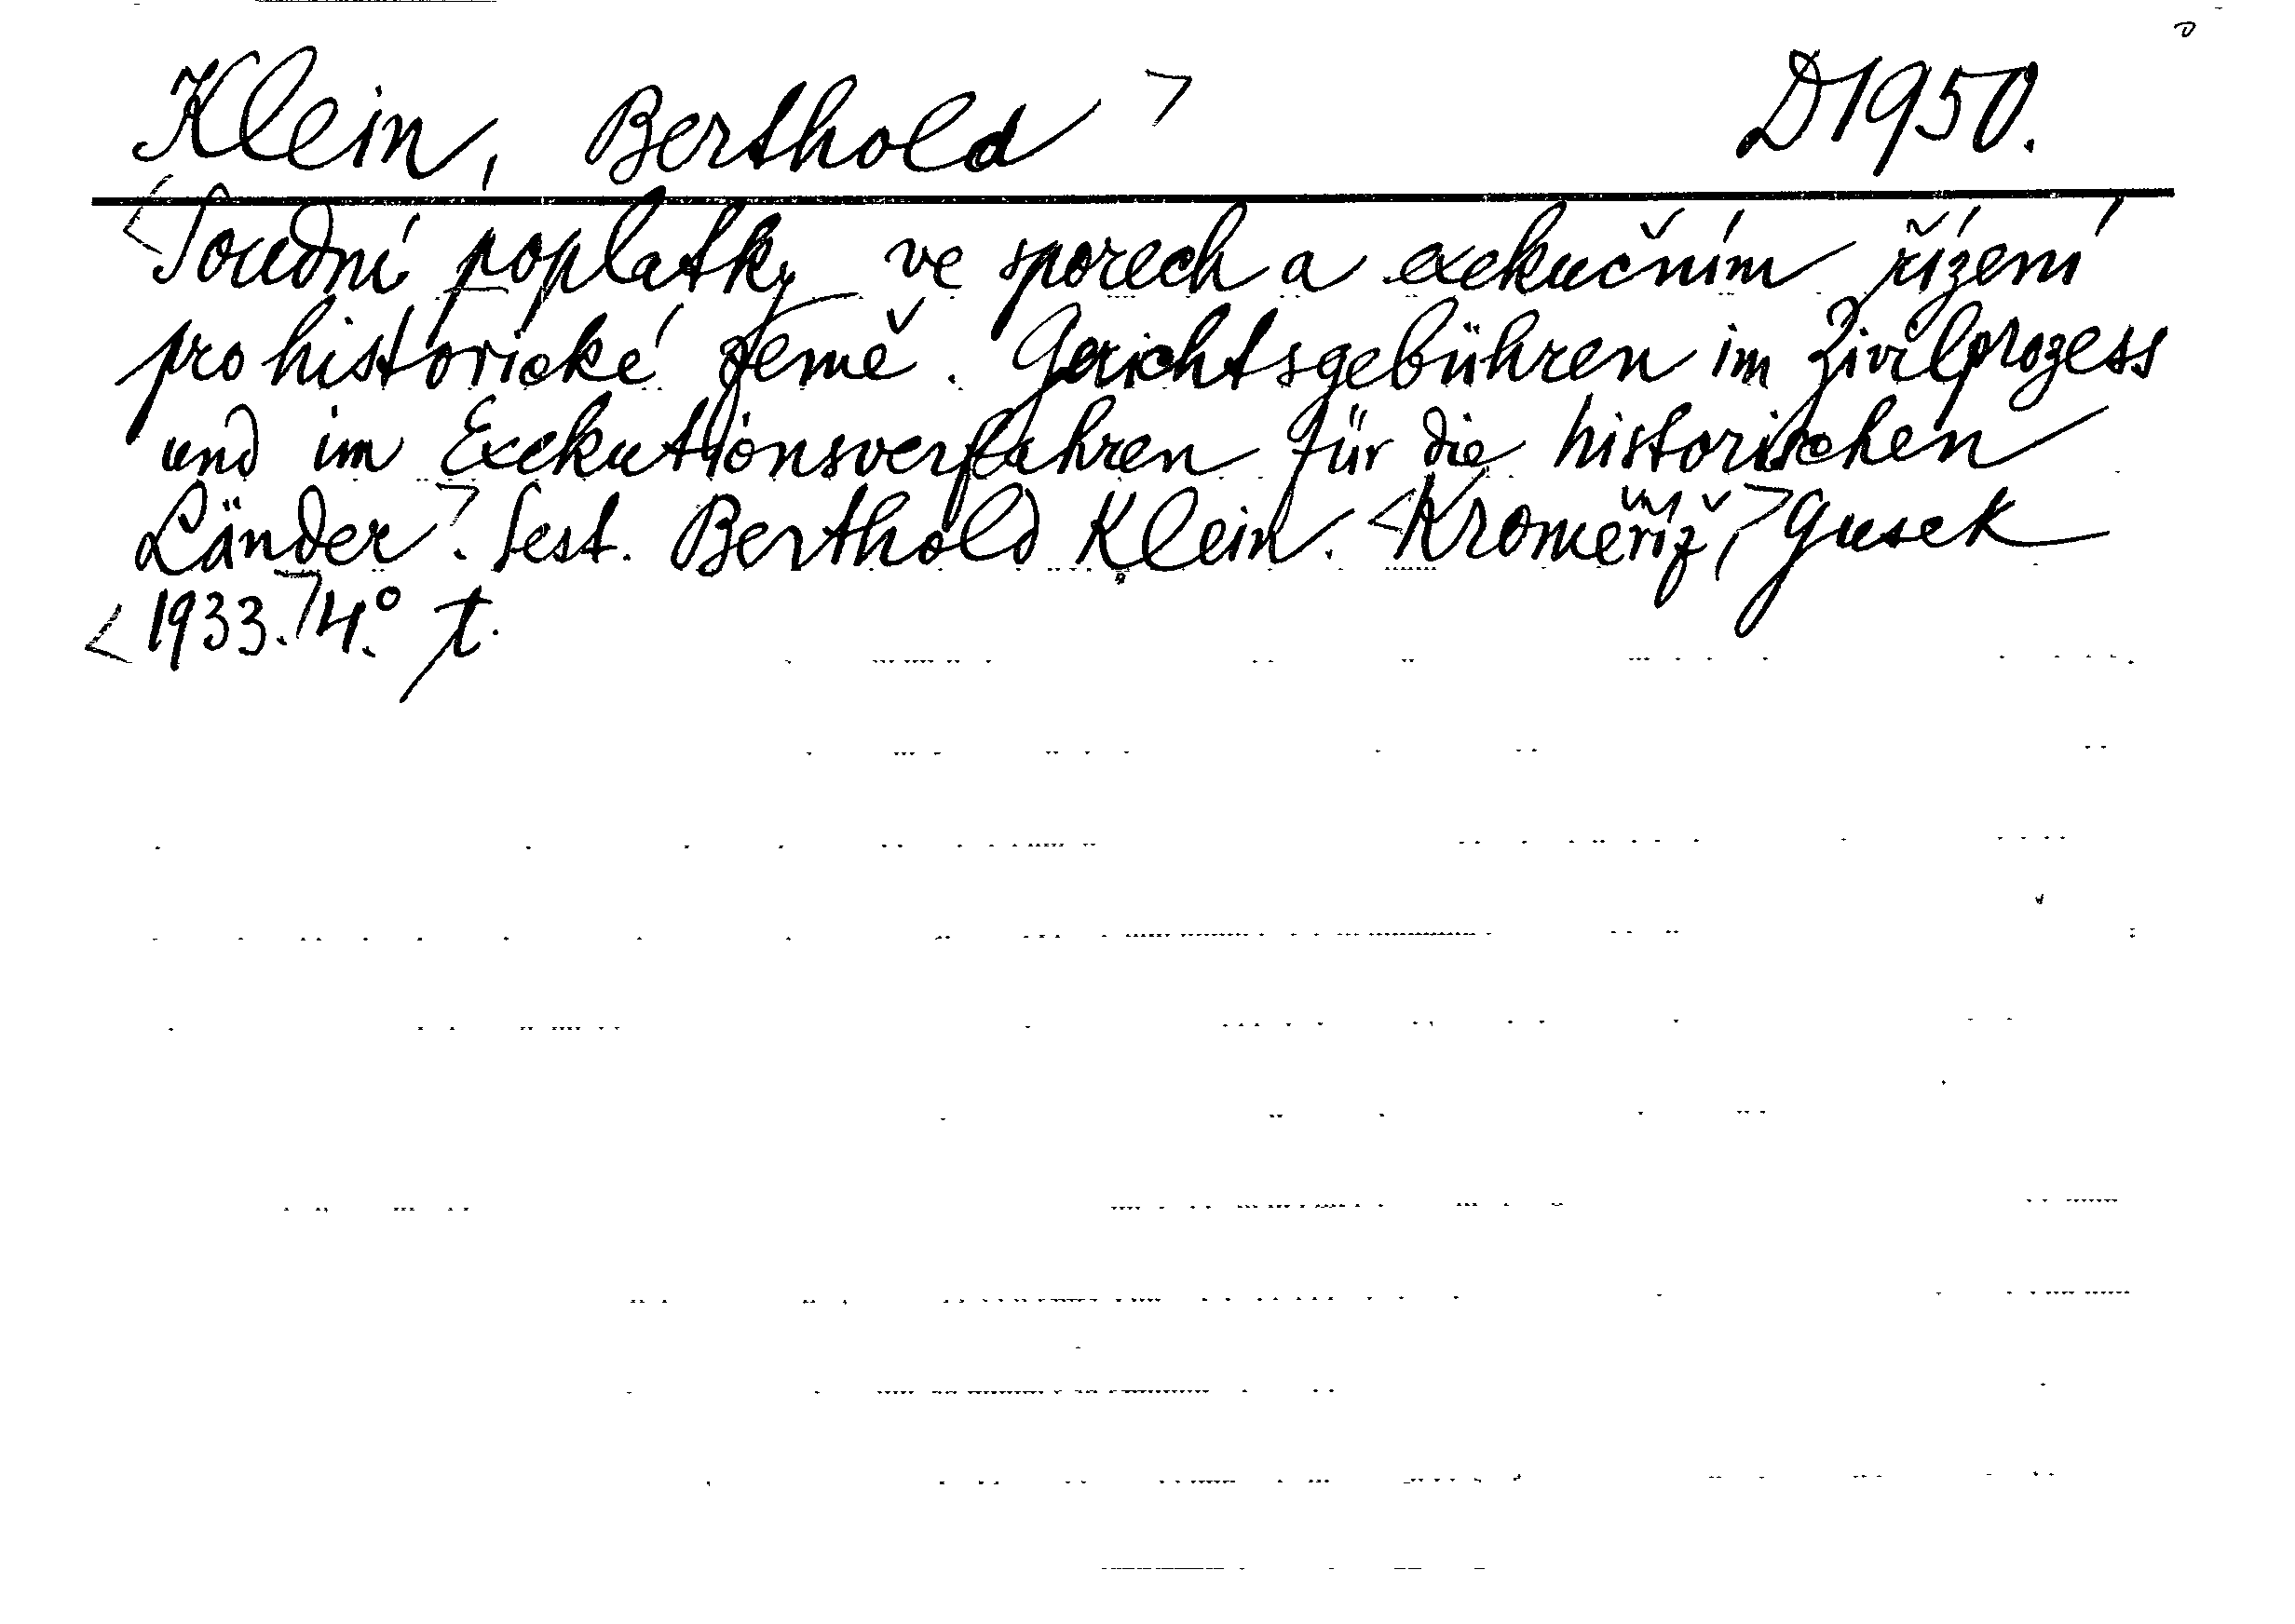 Klein, Berthold > D1950.
<Soudní poplatky ve sporech a exekučním řízení
pro historické země. Gerichtsgebühren im Zivilprozess
und im Exekutionsverfahren für die historischen
Länder>. Sest. Berthold Klein. <Kroměříž,> Gusek
<1933.> 4.° t.